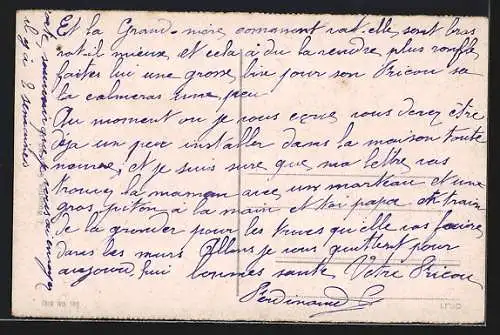 Et la Grand-mère comment vat-elle, sont bras
vat-il mieux, et cela à du la rendre plus ronfle
faites lui une grosse bise pour son Fricou sa
la calmeras une peu
Au moment ou je vous ecris vous devez être
déja un peux installer dans la maison toute
et je suis sure que ma lettre vas
trouver la maman avec un marteau et une
gros piton à la main et toi papa en train
de la gronder pour les trous qu'elle vas faire
dans les murs Allons je vous quittent pour
aujourd'hui bonnes sante Votre Fricou
Ferdinand
il y à 3 semaines